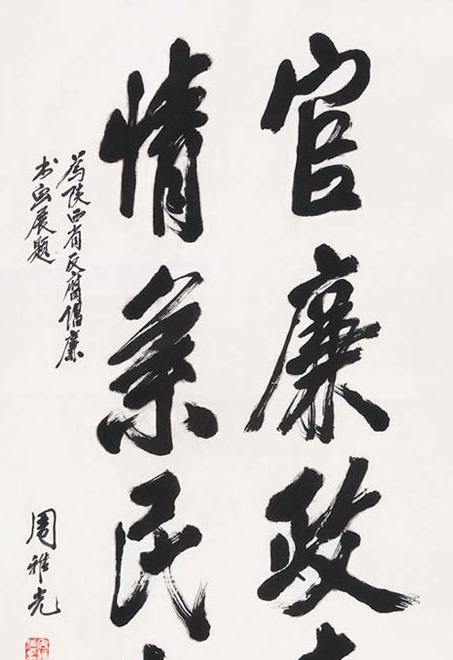 官廉政
情系民
為陕西省反腐倡廉
书画展题
周雅光